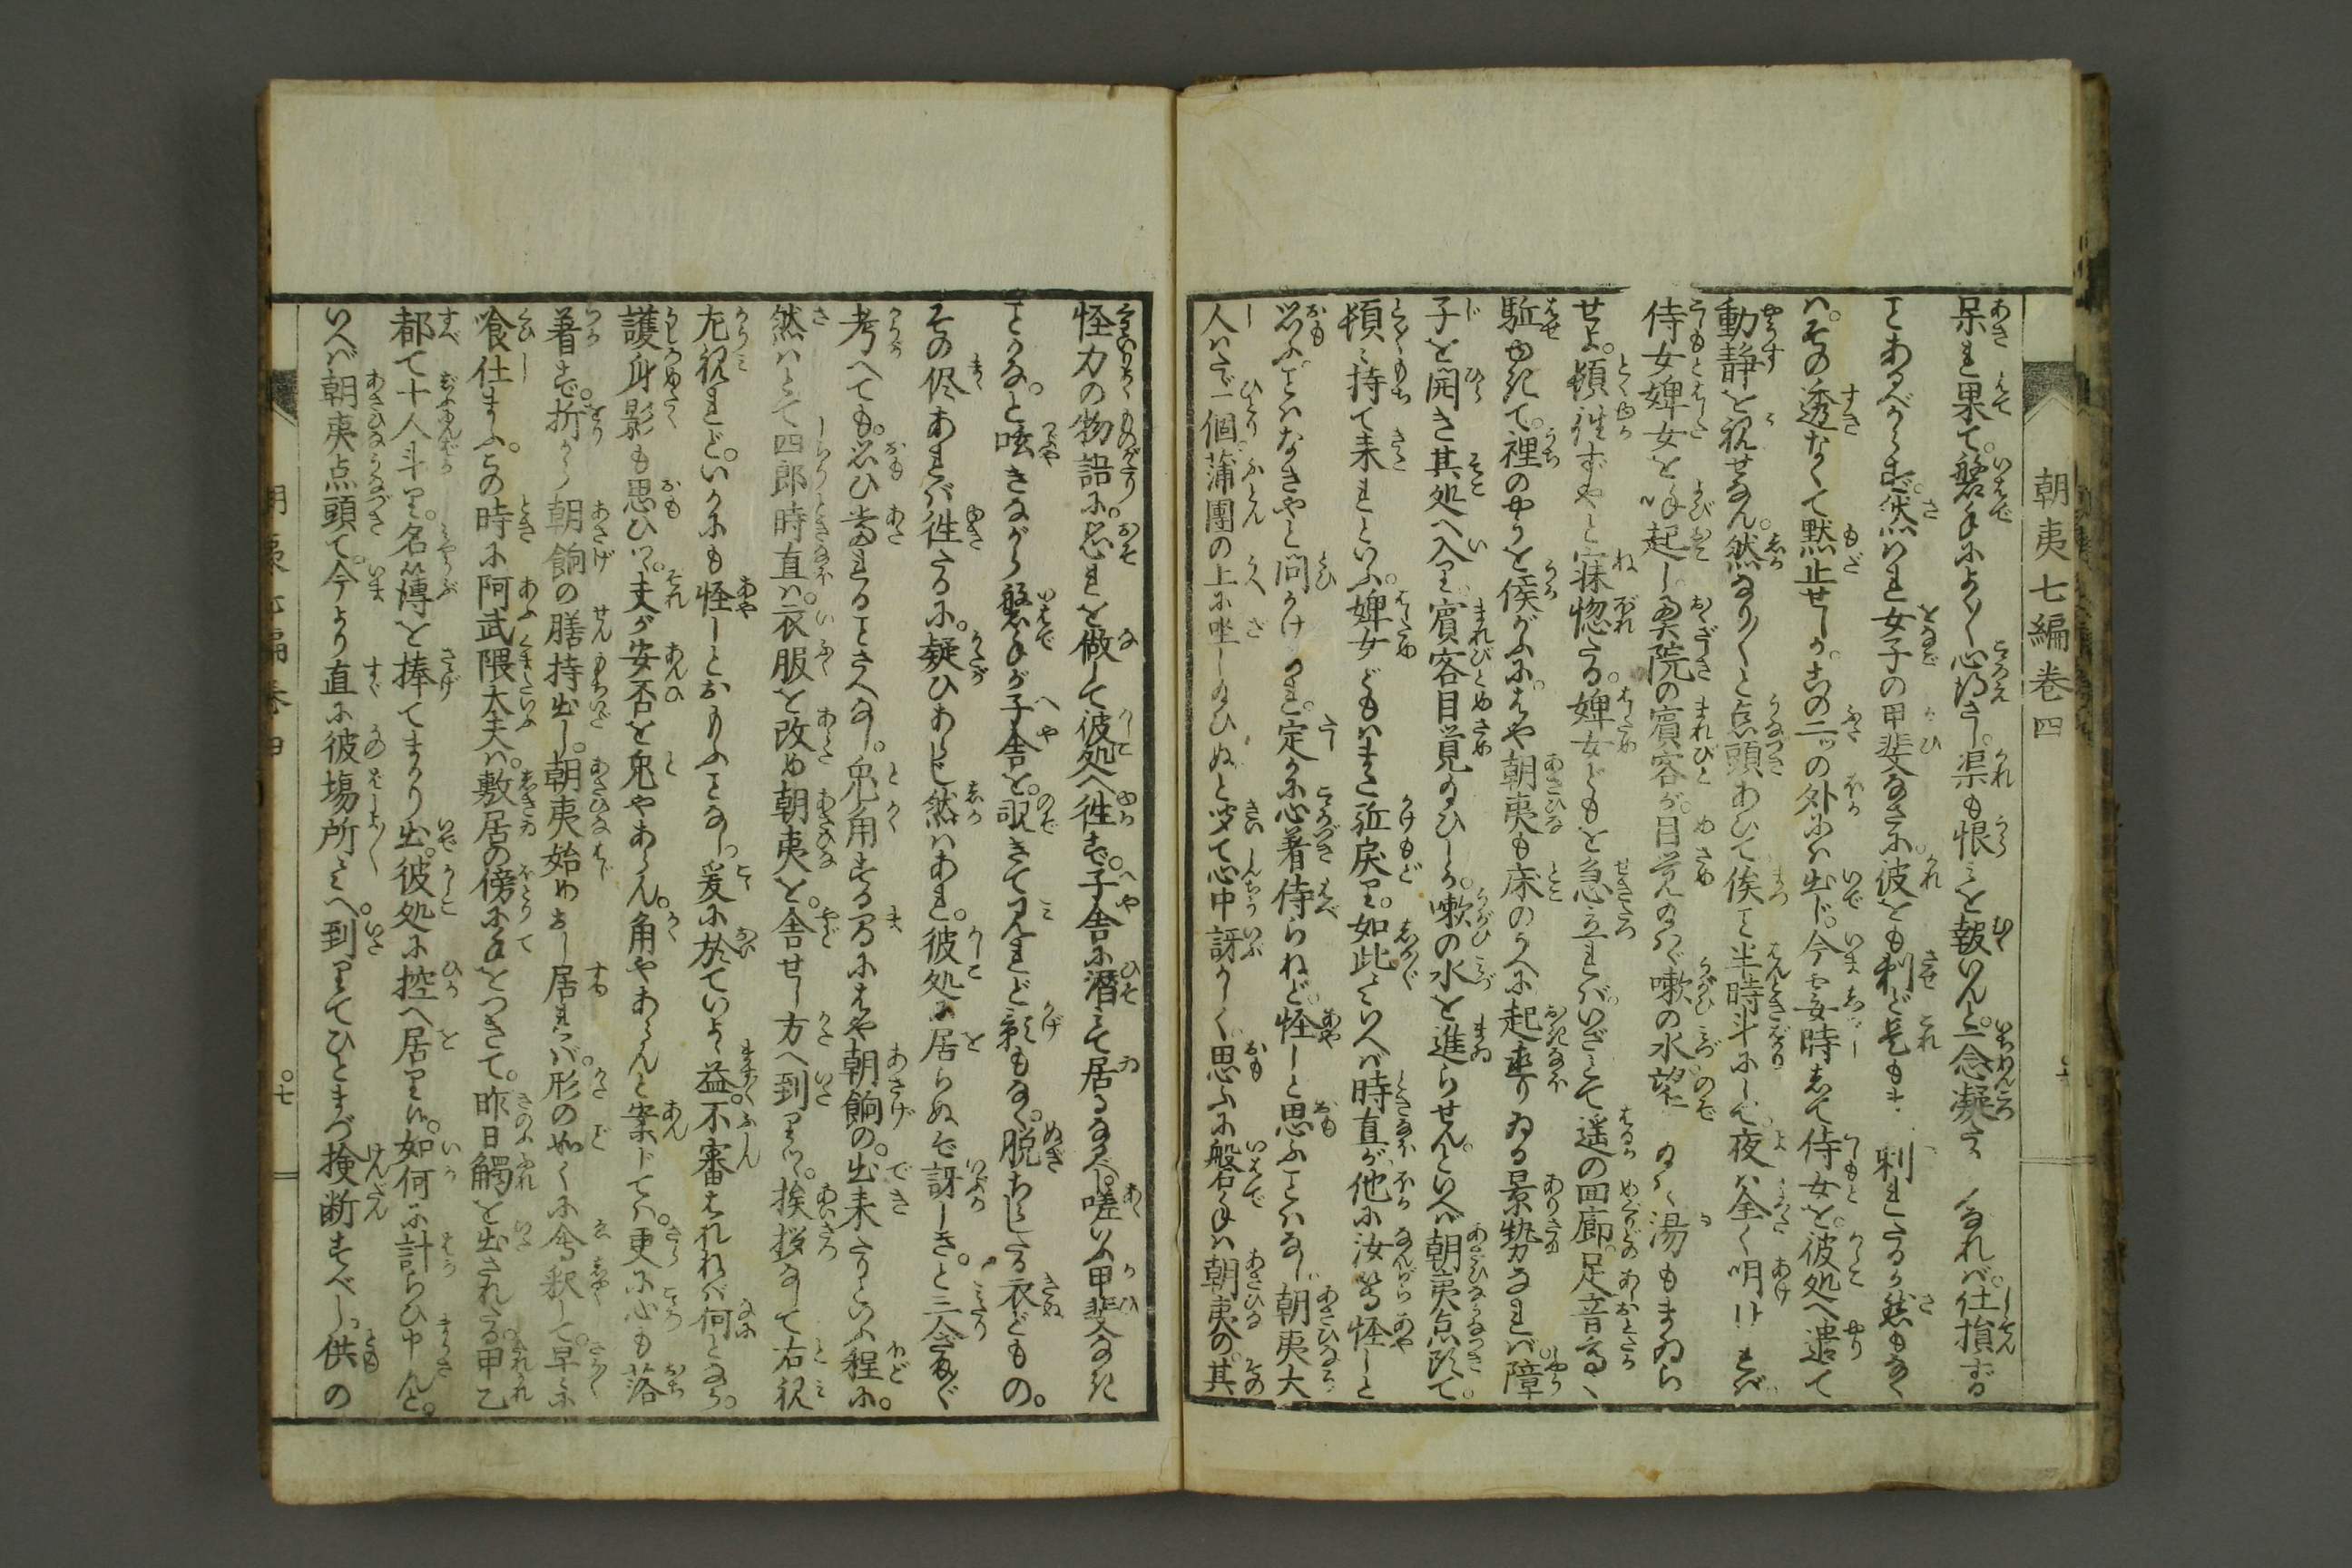 朝夷七編巻四
呆れ果て。磐手によく〳〵心得さし。渠も恨みを報いんと一念凝てゐれバ。仕損ずる
ことあるべからず。然ハれ女子の甲斐なさに。彼をも刺ど是もまた刺れたるか。然もなく
ハ。その透なくて黙止せしか。この二ッの外にハ出ド。今霎時して侍女を。彼処へ遣て
動静を視せなん。然なり〳〵と点頭あひて俟こと半時斗にして。夜ハ全く明けれバ
侍女婢女を呼起し。奥院の賓客が。目覚ぬれバ嗽の水望たまハん湯もまゐら
せよ。頓往ずやと寐惚たる。婢女どもを急立れバ。いざとて遥の回廊。足音高く
駈ゆきて。裡のやうを候がふに。はや朝夷も床のうへに起直りゐる景勢なれバ障
子を開き其処へ入り。賓客目覚給ひしか。嗽の水を進らせん。といへバ朝夷点頭て。
頓く持て来れといふ。婢女どもハまた近戻り。如此といへバ時直が。他に汝等怪しと
思ふことハなきやと問かけられ。定かに心着侍らねど。怪しと思ふことハなし。朝夷大
人ハたゞ一個。蒲團の上に坐し給ひぬと。聞て心中訝かしく思ふに磐手ハ朝夷の。其
怪力の物語に。恐れを做して彼処へ往ず。子舎に潜みて居るなるべし。嗟いふ甲斐なき
ことかな。と呟きながら磐手が子舎を。覗きて見れど影もなく。脱ちらしたる衣どもの。
その侭あれバ往たるに。疑ひあらじ然ハあれ。彼処に居らぬぞ訝しき。と三人斉く
考へても。思ひ当れることさへなし。兎角する間にはや朝餉の。出来たりといふ程に。
然ハとて四郎時直ハ。衣服を改め朝夷を。舎せし方へ到りつゝ。挨拶なして右視
左視れど。いかにも怪しとおもふことなし。爰に於ていよゝ益。不審はれねバ何となう。
護身影も思ひつゝ。夫が安否を兎やあらん。角やあらんと案ドてハ。更に心も落
着ず。折から朝餉の膳持出し。朝夷始めおし居れバ。形の如くに会釈して。早々に
喰仕まふ。この時に阿武隈太夫ハ。敷居の傍に手をつきて。昨日觸を出されたる。甲乙
都て十人斗り。名簿を捧てまかり出。彼処に控へ居り候。如何に計らひ申んと。
いへバ朝夷点頭て。今より直に彼場所へ。到りてひとまづ検断すべし。供の
七